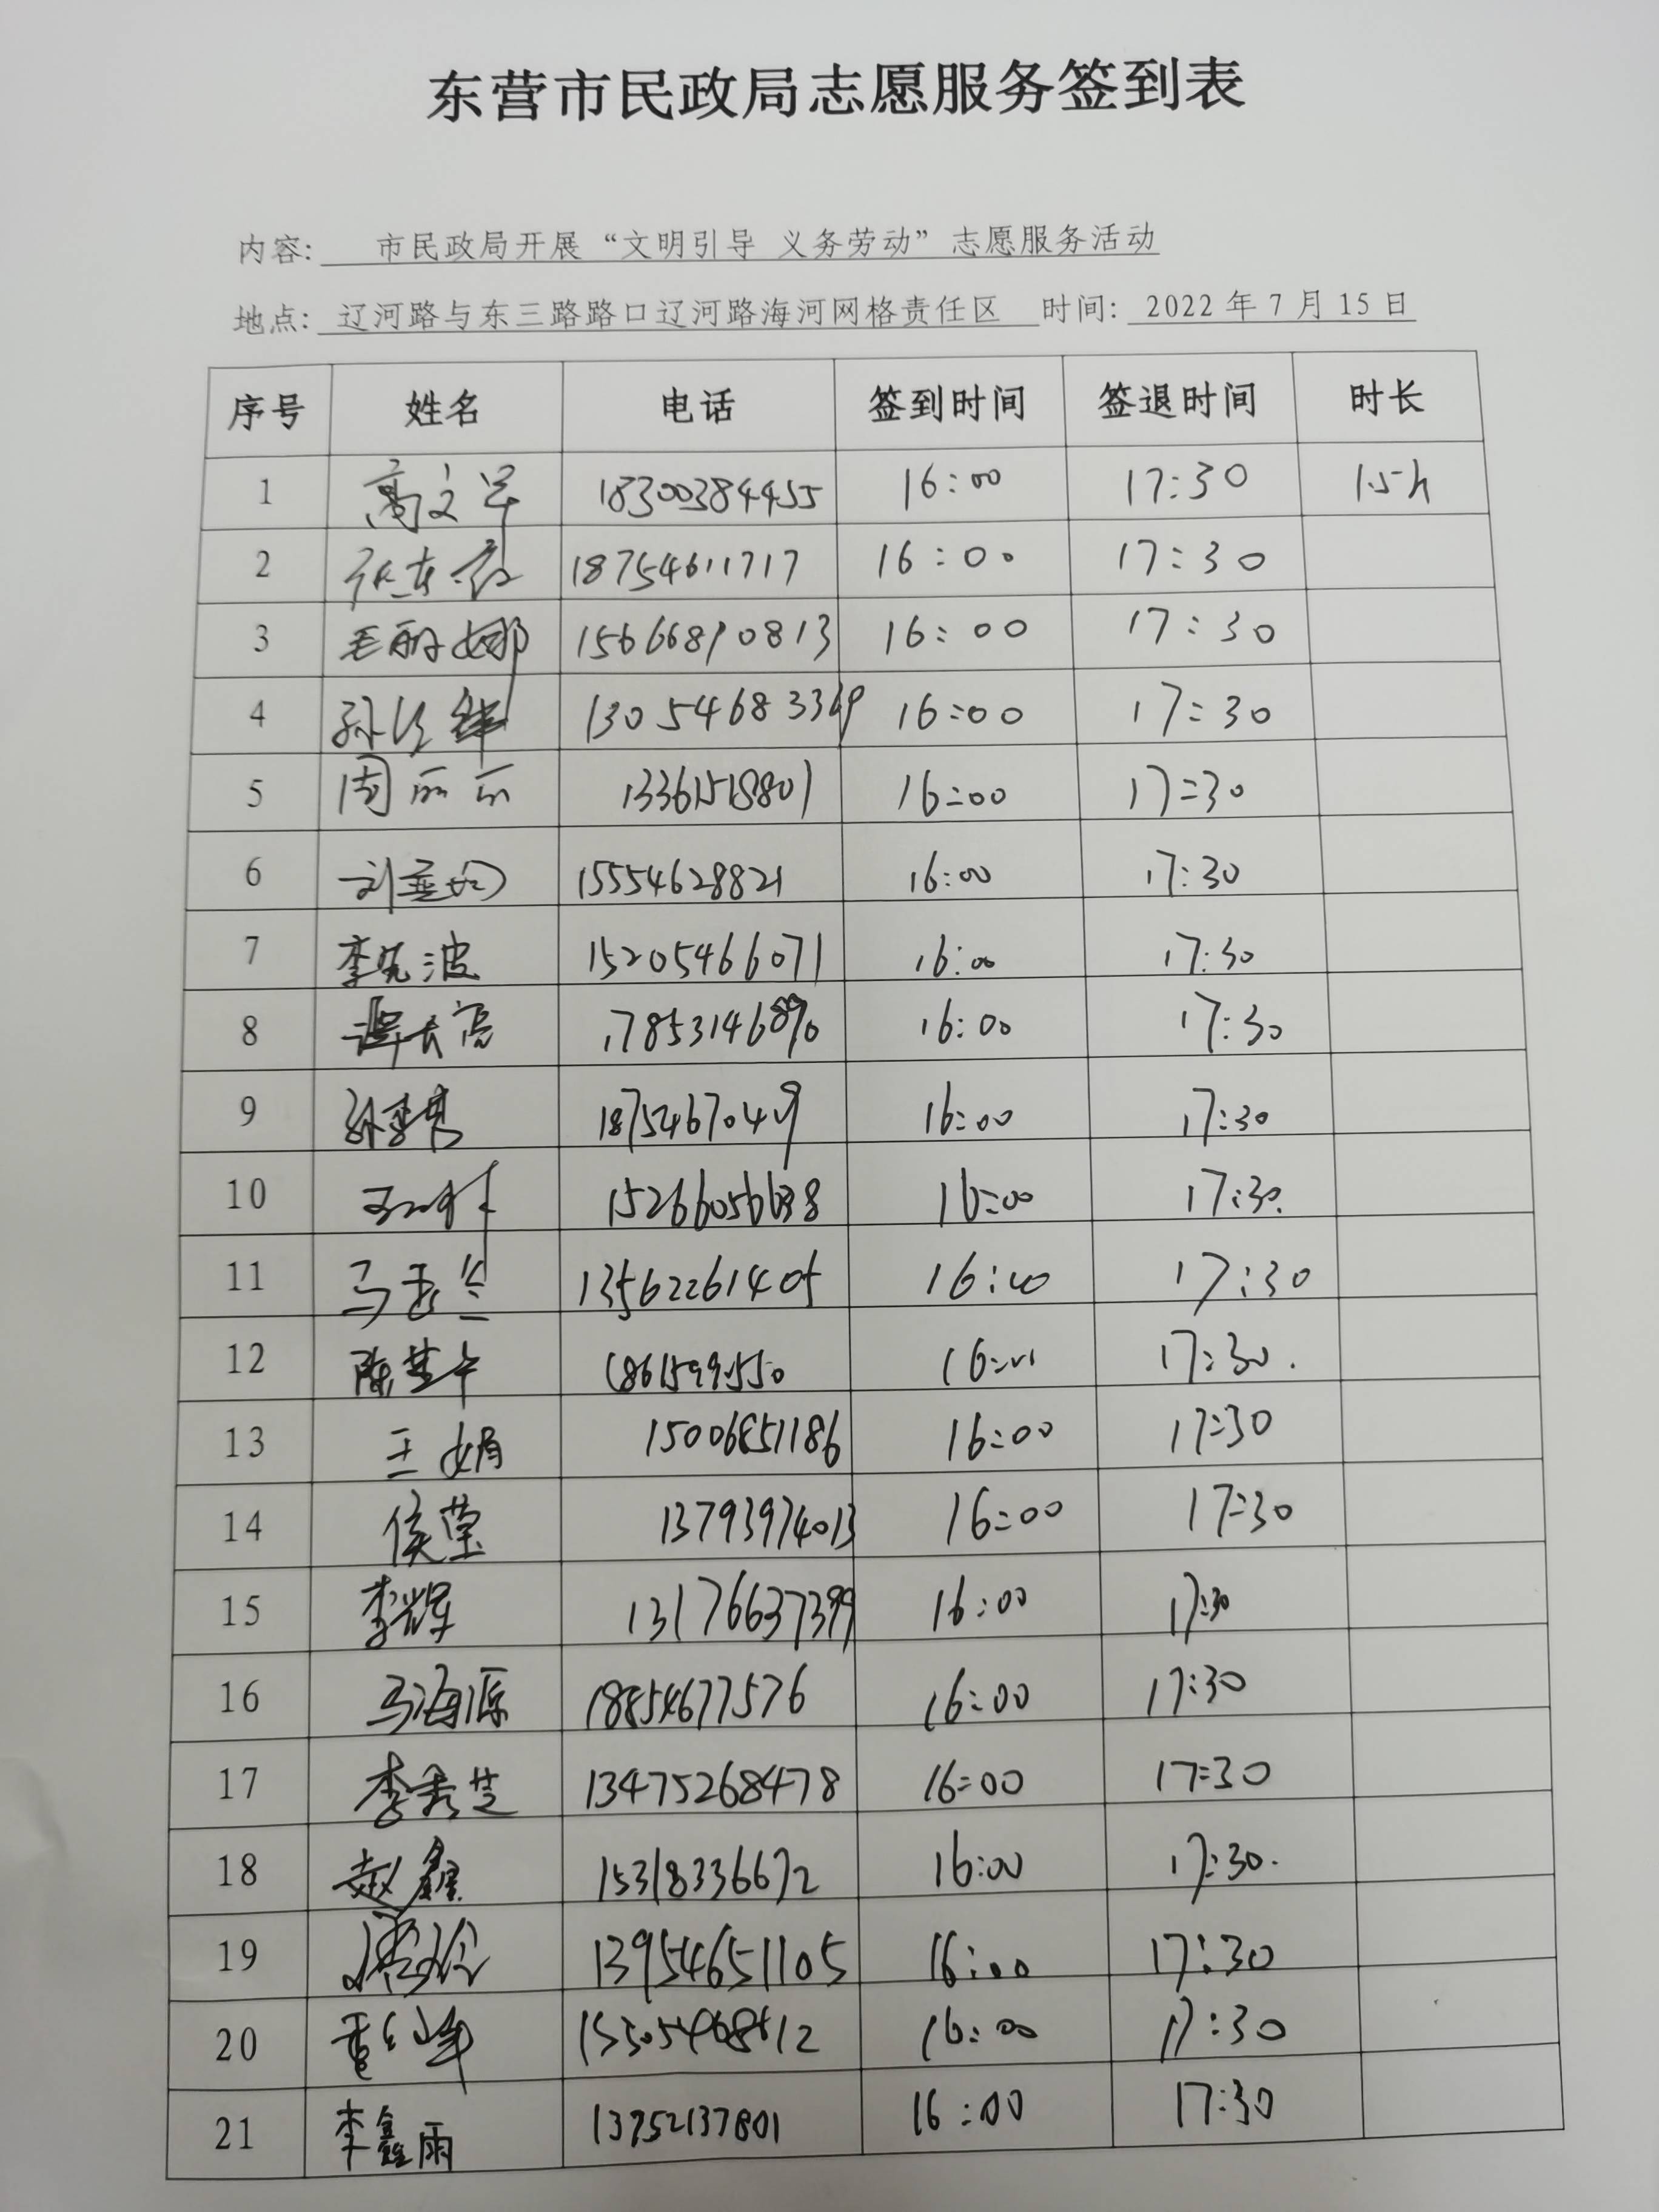 东营市民政局志愿服务签到表
内容: 市民政局开展“文明引导 义务劳动”志愿服务活动
地点: 辽河路与东三路路口辽河路海河网格责任区 时间: 2022年7月15日
序号 姓名 电话 签到时间 签退时间 时长
1 高文军 18300384455 16:00 17:30 1.5h
2 18754611717 16:00 17:30
3 毛丽娜 15666890813 16:00 17:30
4 13054683369 16:00 17:30
5 周丽丽 13361518801 16:00 17:30
6 15554628821 16:00 17:30
7 李先波 15205466071 16:00 17:30
8 16:00 17:30
9 18754670449 16:00 17:30
10 16:00 17:30
11 马玉兰 13562261405 16:00 17:30
12 16:00 17:30.
13 王娟 15006851186 16:00 17:30
14 侯莹 13793974013 16:00 17:30
15 李辉 13176637399 16:00 17:30
16 马海源 18854677576 16:00 17:30
17 李秀芝 13475268478 16:00 17:30
18 赵鑫 15318336672 16:00 17:30.
19 13954651105 16:00 17:30
20 16:00 17:30
21 李鑫雨 16:00 17:30